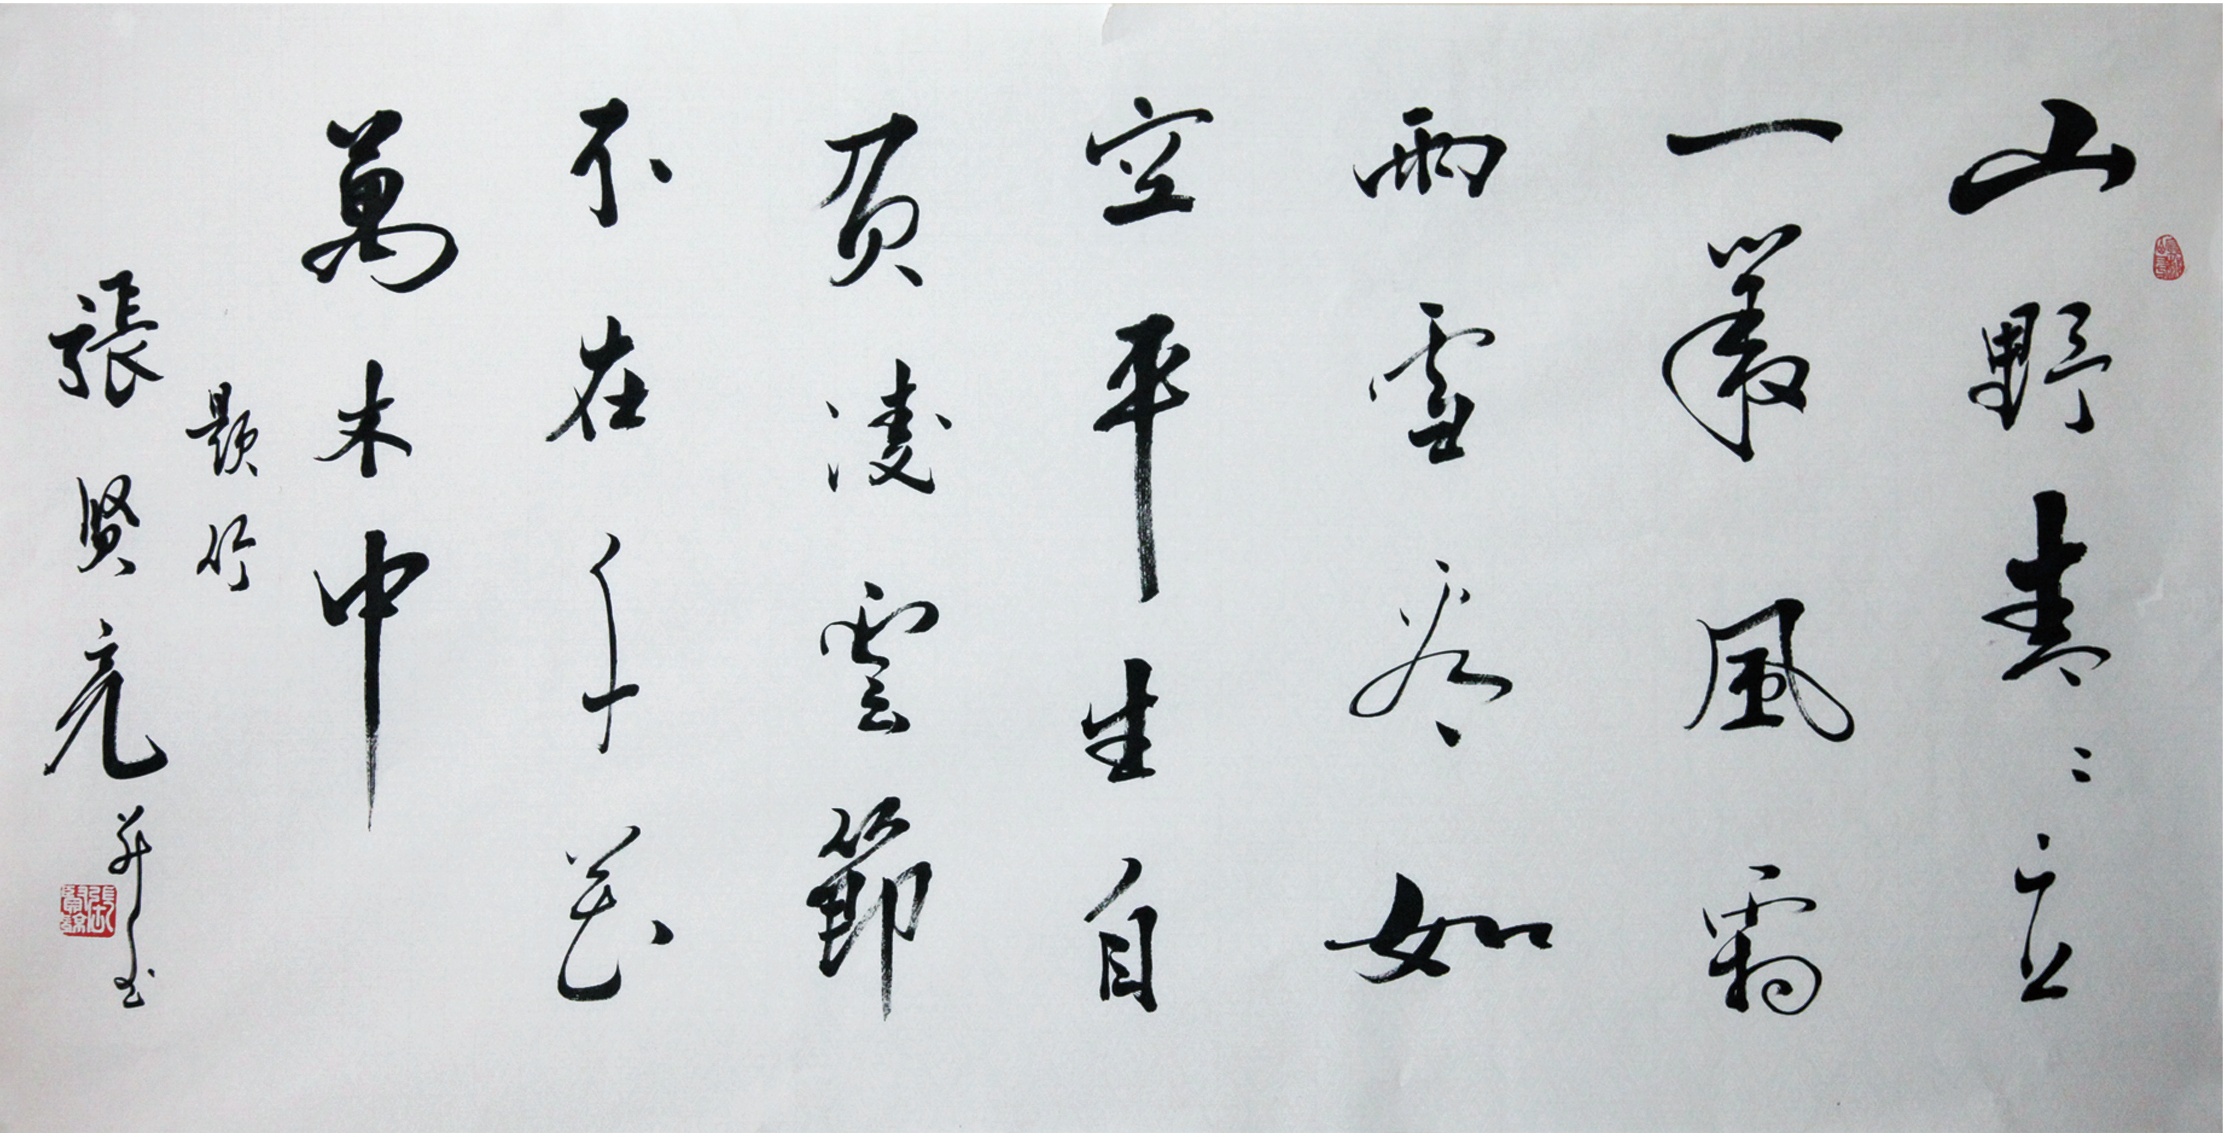 山野青々立
一叢風霜
雨雪看如
空平生自
負凌雲節
不在千花
萬木中
題竹
張贤亮并书